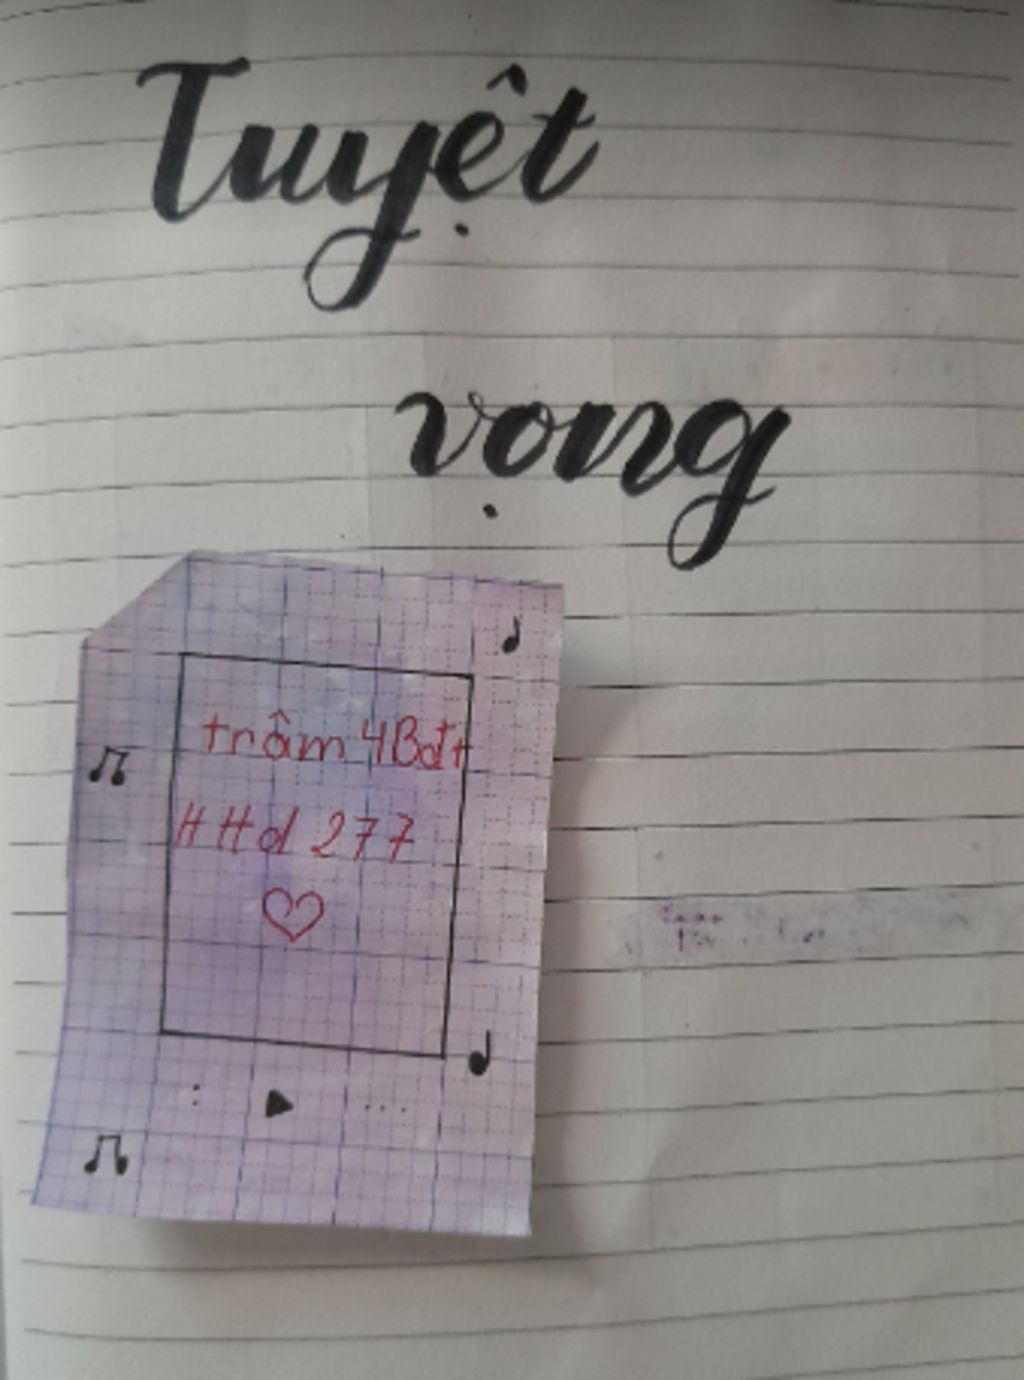 Tuyệt
vọng
trâm 4Bđt
HHd 277